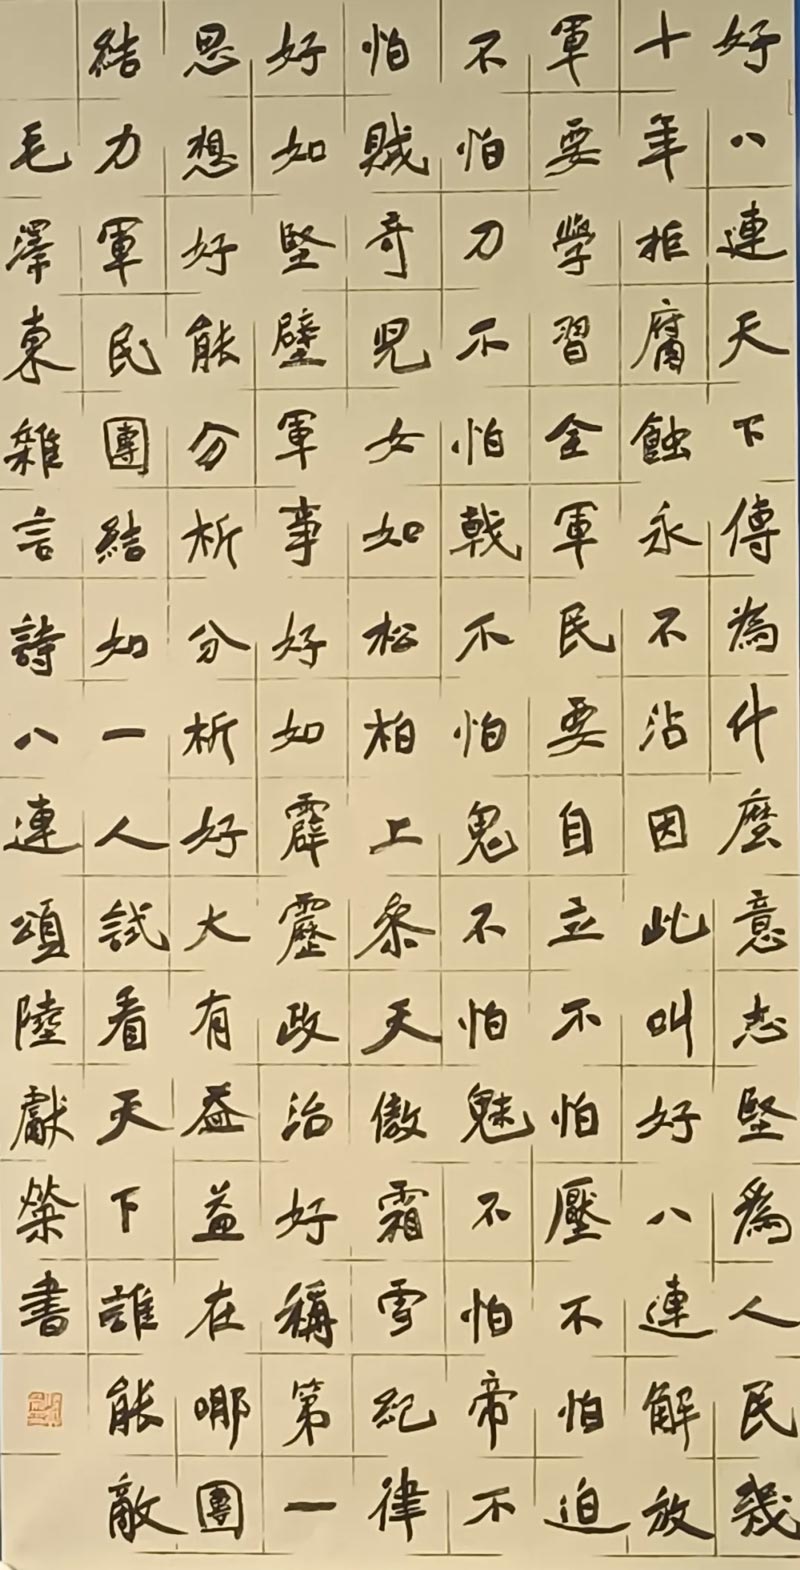 好八連天下傳為什麼意志堅爲人民幾
十年拒腐蝕永不沾因此叫好八連解放
軍要學習全軍民要自立不怕壓不怕迫
不怕刀不怕戟不怕鬼不怕魅不怕帝不
怕賊奇兒女如松柏上叅天傲霜雪紀律
好如堅壁軍事好如霹靂政治好稱第一
思想好能分析分析好大有益益在哪團
結力軍民團結如一人試看天下誰能敵
毛澤東雜言詩八連頌陸獻榮書